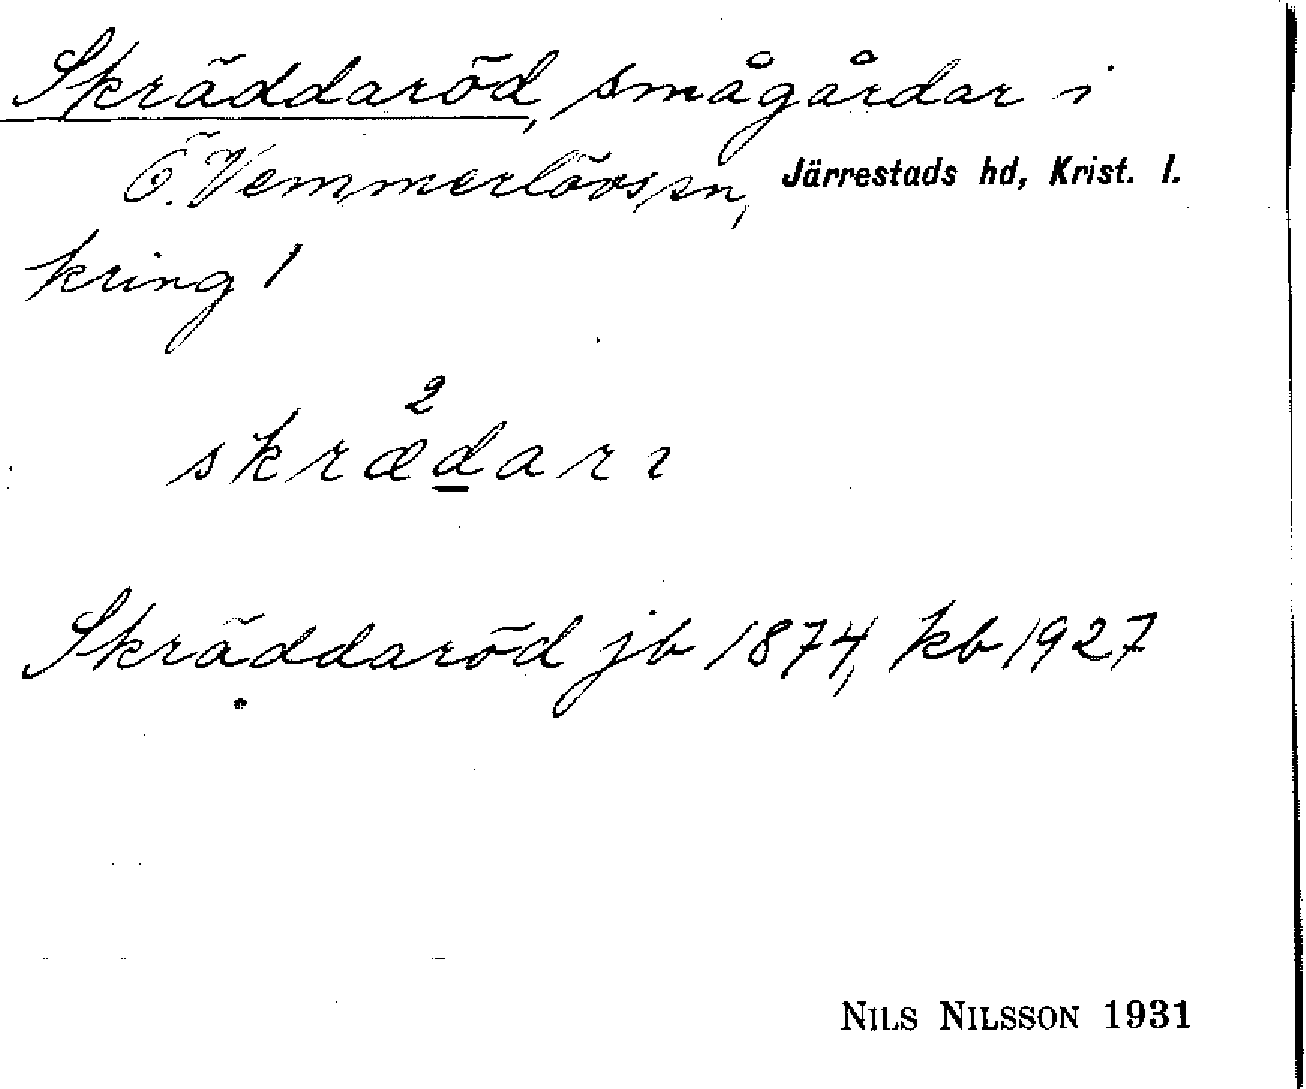 Skräddaröd, smågårdar i
Ö. Vemmerlövs sn, Järrestads hd, Krist. l.
kring 1
2
skrædarı
Skräddaröd jb 1874, kb 1927
NILS NILSSON 1931